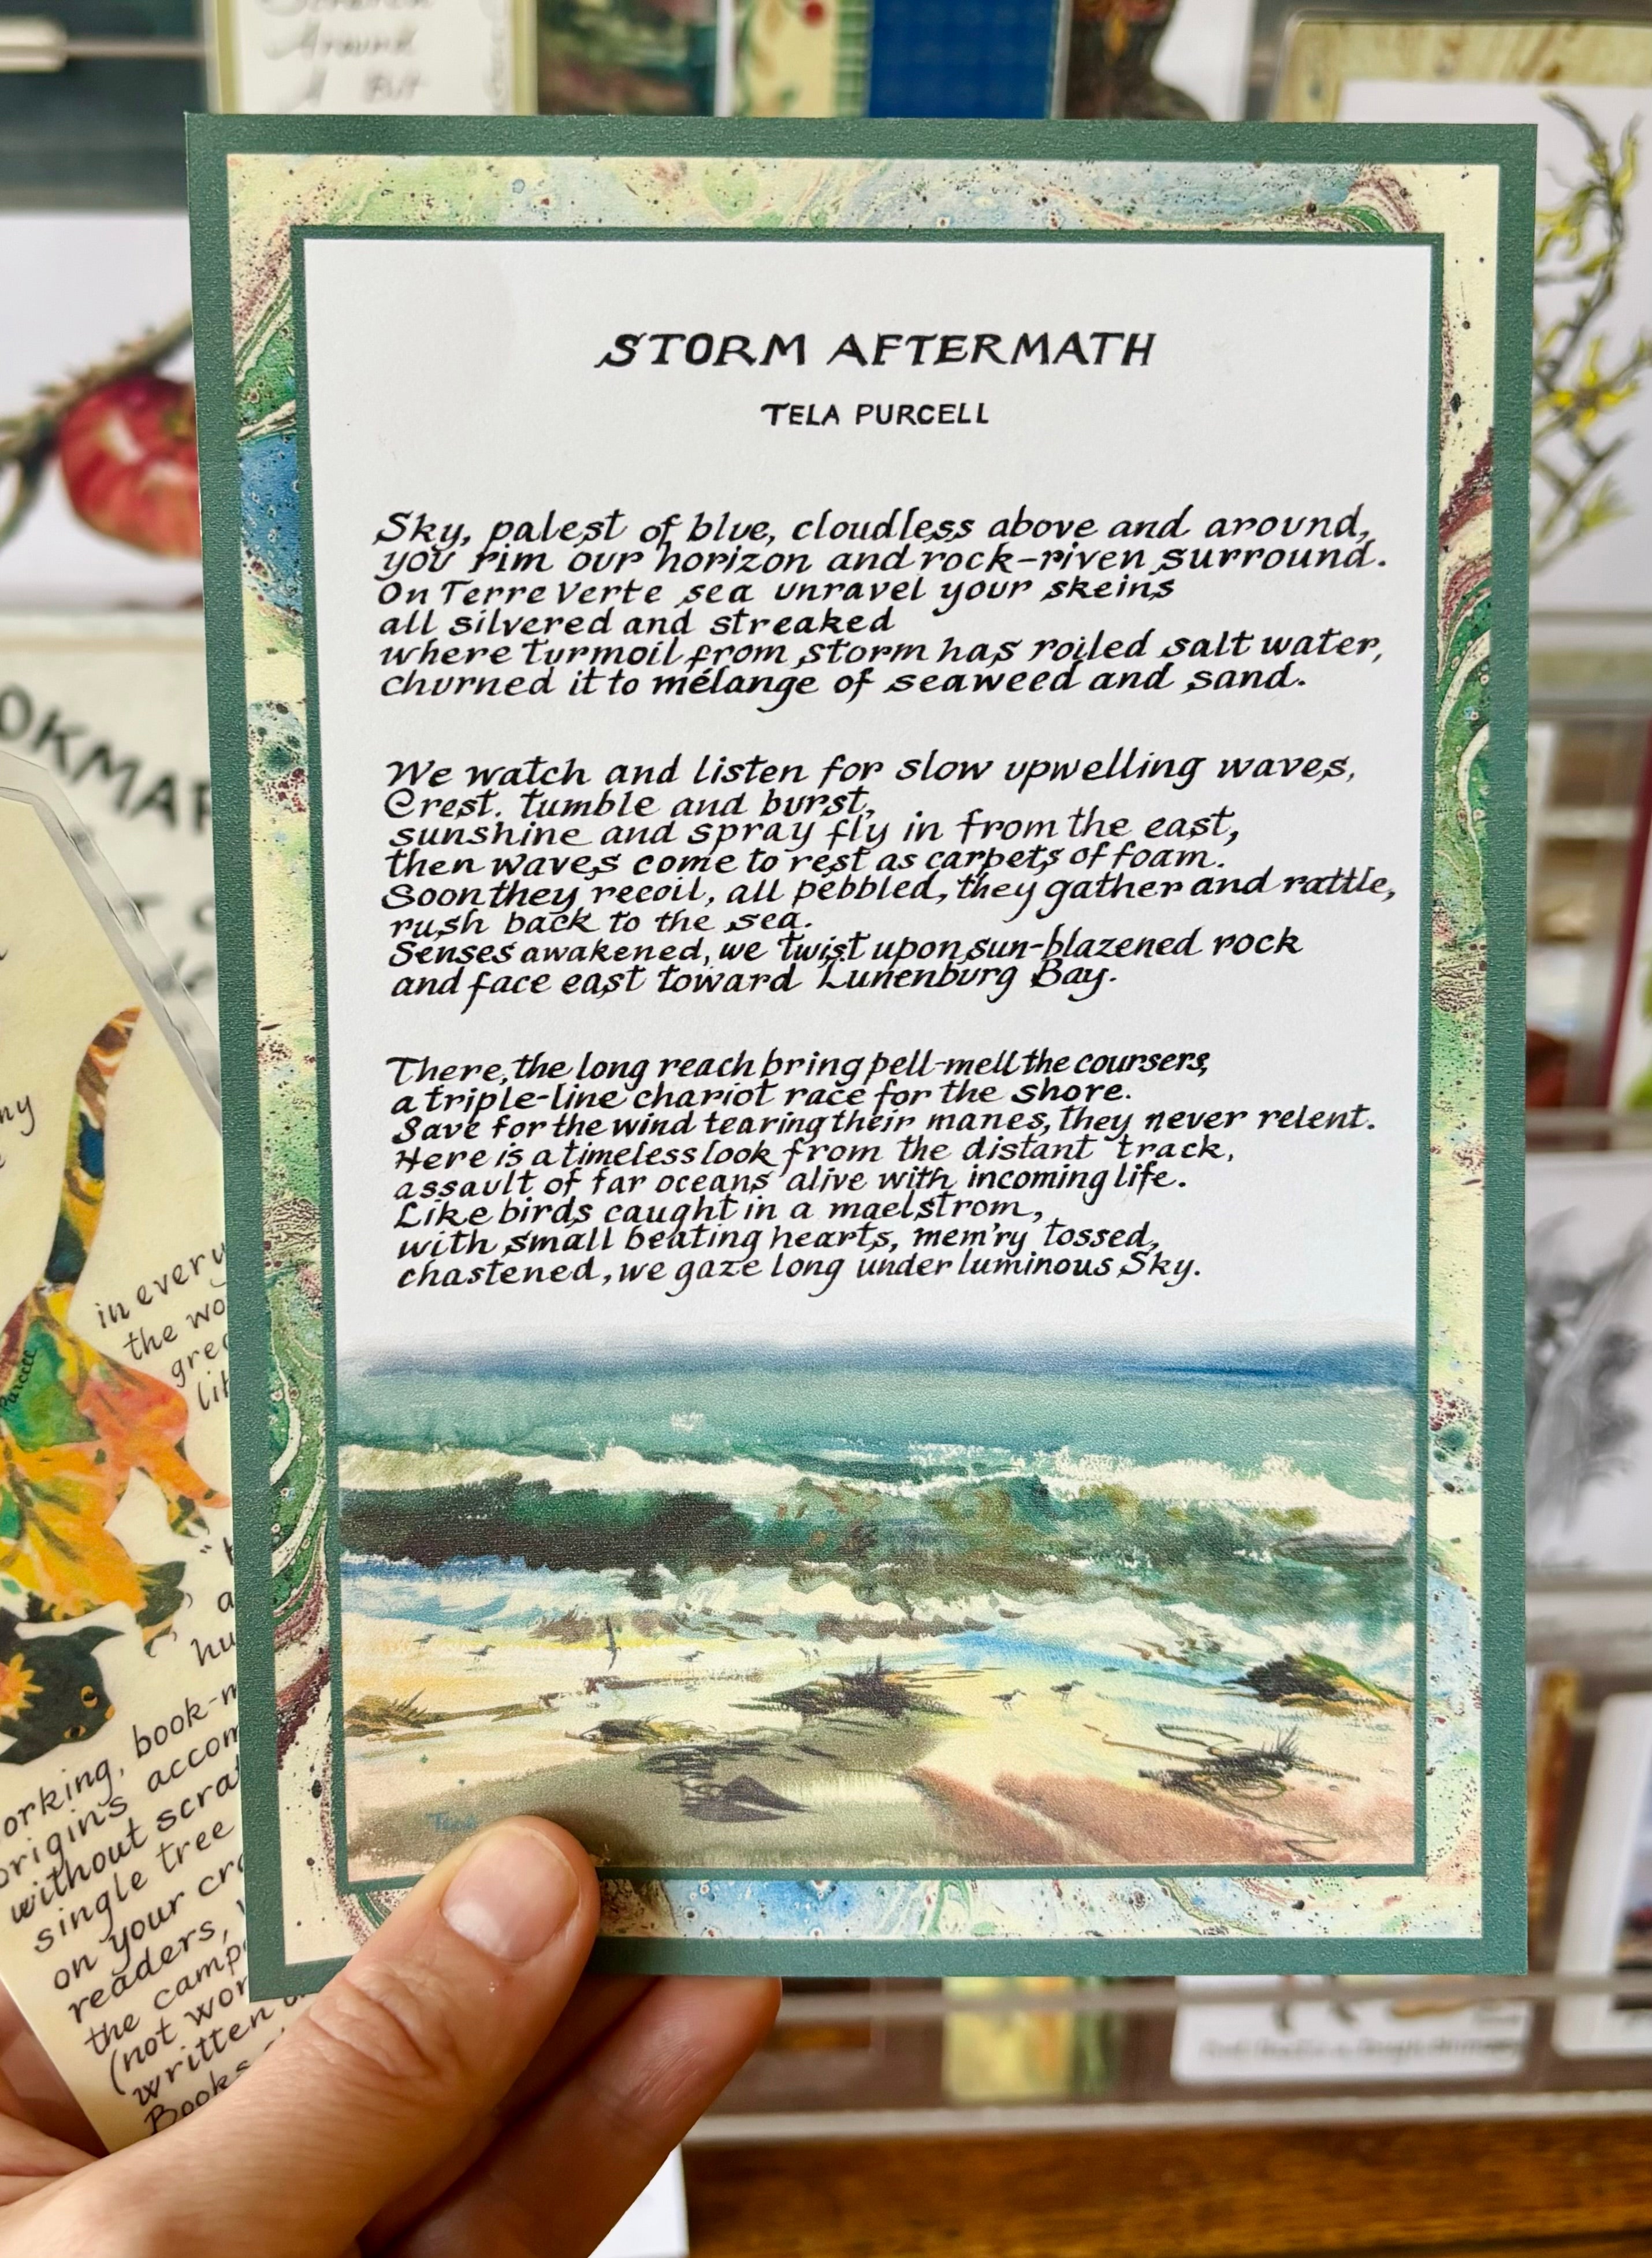 Around
A Bit
STORM AFTERMATH
TELA PURCELL
Sky, palest of blue, cloudless above and around,
you rim our horizon and rock-riven surround.
On Terre Verte sea unravel your skeins
all silvered and streaked
where turmoil from storm has roiled salt water,
churned it to mélange of seaweed and sand.
We watch and listen for slow upwelling waves,
Crest. tumble and burst,
sunshine and spray fly in from the east,
then waves come to rest as carpets of foam.
Soon they recoil, all pebbled, they gather and rattle,
rush back to the sea.
Senses awakened, we twist upon sun-blazened rock
and face east toward Lunenburg Bay.
There, the long reach bring pell-mell the coursers,
a triple-line chariot race for the shore.
Save for the wind tearing their manes, they never relent.
Here is a timeless look from the distant track,
assault of far oceans alive with incoming life.
Like birds caught in a maelstrom,
with small beating hearts, mem'ry tossed,
chastened, we gaze long under luminous Sky.
in every
the
Purcell
orking, book-
origins
without
single tree
on your
readers,
the
(not
written
Books